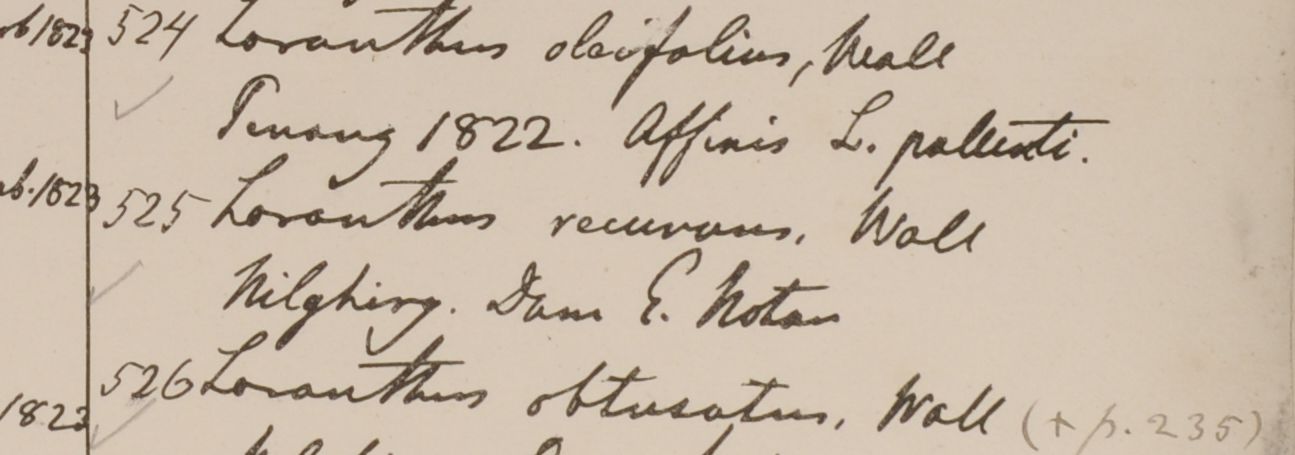 1823 524 Loranthus oleifolius, Wall
Penang 1822. Affinis L. pallenti.
1823 525 Loranthus recurvans. Wall
Nilghiry. Dom E. Noton
1823 526 Loranthus obtusatus. Wall (+ p. 235)